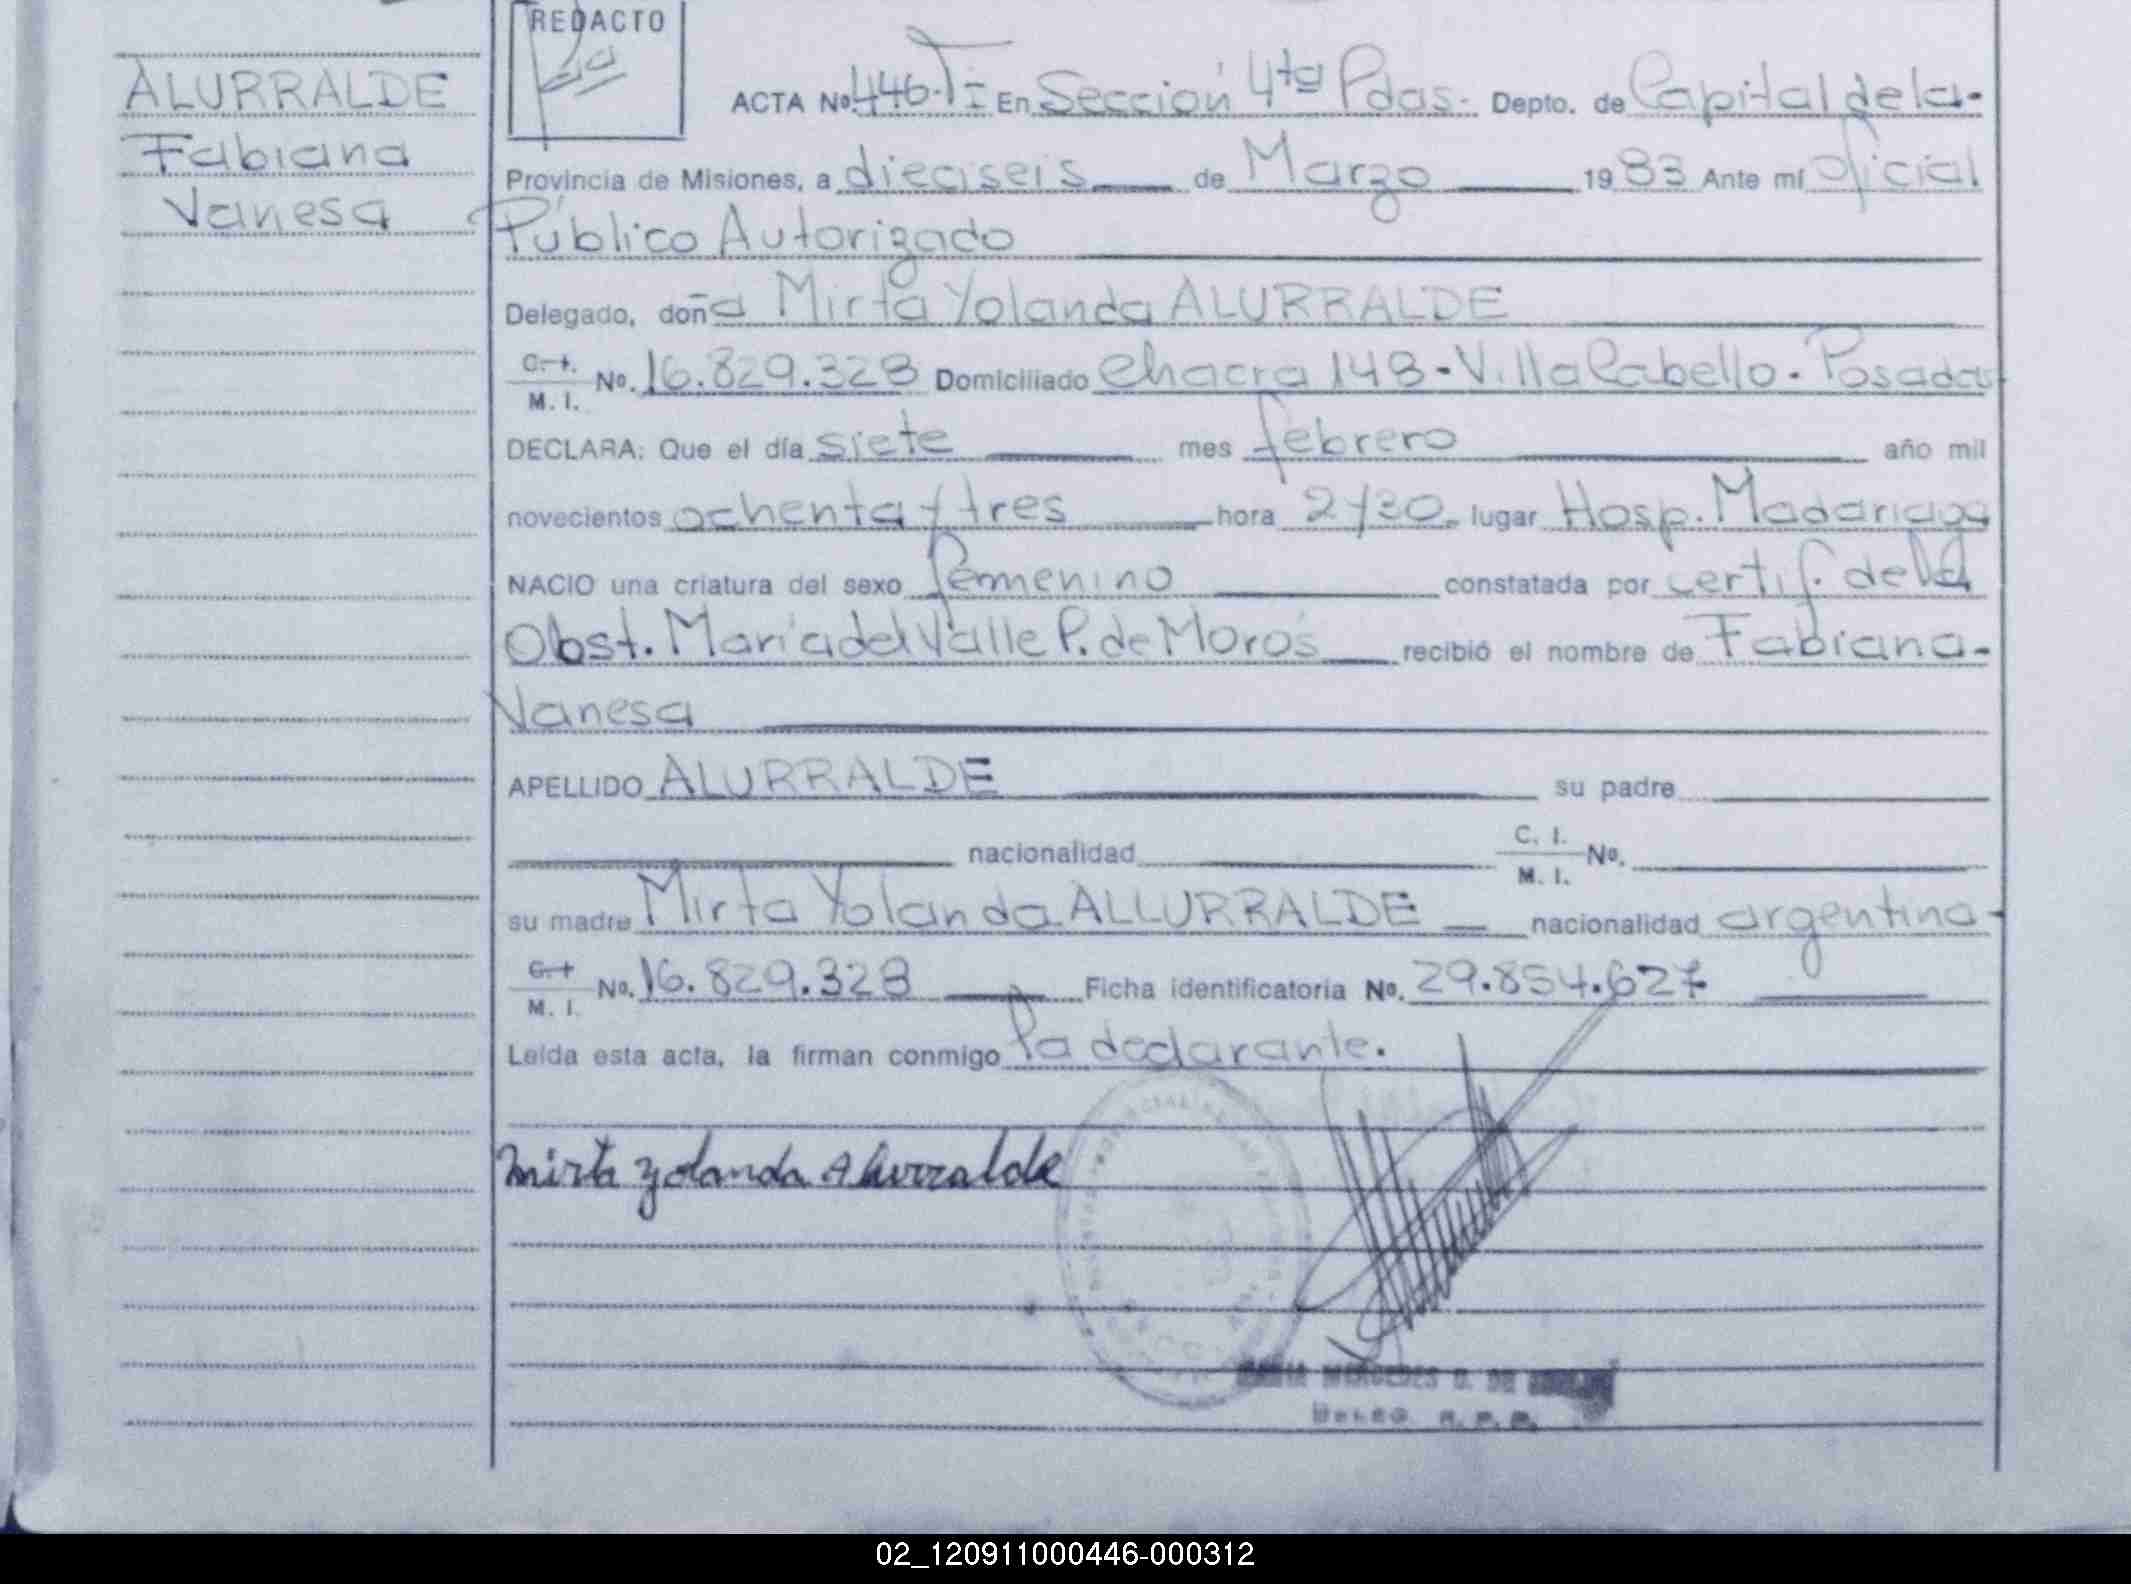 REDACTO
ALURRALDE
Fabiana
Vanesa
ACTA No 446-TI En Sección 4ta Pdas- Depto. de Capital de la-
Provincia de Misiones, a dieciseis de Marzo 1983 Ante mí Oficial
Público Autorizado
Delegado, doña Mirta Yolanda ALURRALDE
C. I.
M. I. No. 16.829.328 Domiciliado Chacra 148-Villa Cabello-Posadas
DECLARA: Que el día siete mes febrero año mil
novecientos ochenta y tres hora 2y30 lugar Hosp. Madariaga
NACIO una criatura del sexo femenino constatada por certif. de la
Obst. María del Valle P. de Moros recibió el nombre de Fabiana-
Vanesa
APELLIDO ALURRALDE su padre
nacionalidad C. I.
M. I. No.
su madre Mirta Yolanda ALLURRALDE nacionalidad argentina-
C. I.
M. I. No. 16.829.328 Ficha identificatoria No. 29.854.627
Leída esta acta, la firman conmigo la declarante.
Mirta Yolanda Alurralde
MERCEDES G. DE
02_120911000446-000312